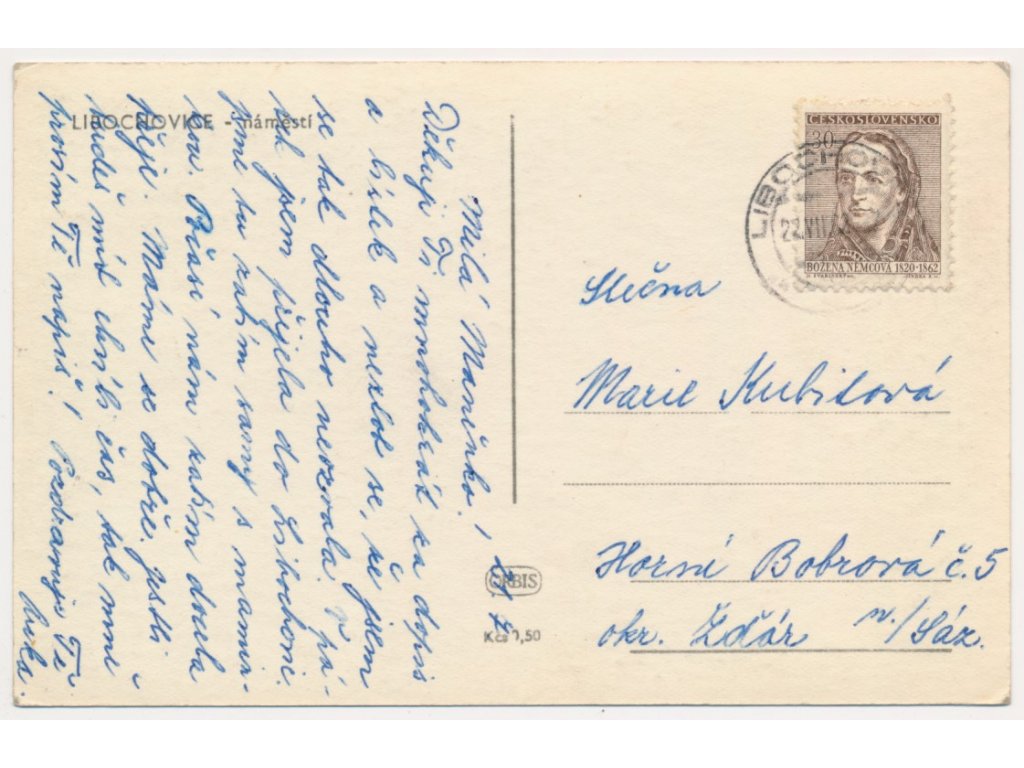 LIBOCHOVICE - náměstí
21/7
Milá Mařinko!
Děkuji Ti mnohokrát za dopis
a lístek a nezlob se, že jsem
se tak dlouho neozvala. V pá-
tek jsem přijela do Libochovic.
Jsme tu zatím samy s mami-
nkou. Počasí nám zatím docela
přeje. Máme se dobře. Jestli
budeš mít chvíli čas, tak mně
prosím Tě napiš! Pozdravuje Tě
ORBIS
Kčs 0,50
ČESKOSLOVENSKO
30
BOŽENA NĚMCOVÁ 1820-1862
LIBOCHOV
22.VII
Slečna
Marie Kubitová
Horní Bobrová č. 5
okr. Žďár n./Sáz.